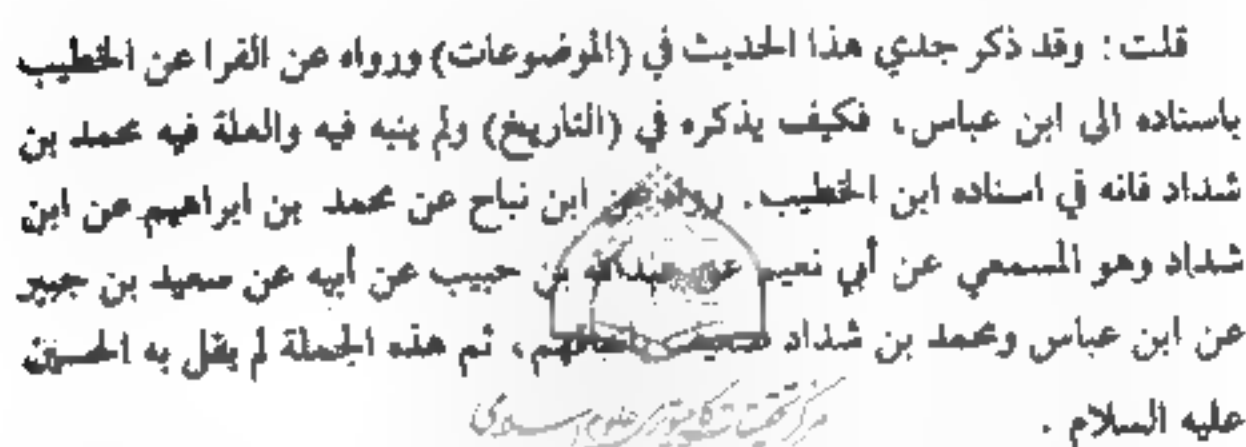 قلت : وقد ذكر جدي هذا الحديث في (الموضوعات) ورواه عن الفرا عن الخطيب
باسناده الى ابن عباس ، فكيف يذكره في (التاريخ) ولم ينبه فيه والعلة فيه محمد بن
شداد فانه في اسناده ابن الخطيب . رواه عن ابن نباح عن محمد بن ابراهيم عن ابن
شداد وهو المسمعي عن أبي نعيم عن عبدالله بن حبيب عن أبيه عن سعيد بن جبير
عن ابن عباس ومحمد بن شداد ضعيف ، ثم هذه الجملة لم يقل به الحسين
عليه السلام .
مركز تحقيقات كامپيوترى علوم اسلامى